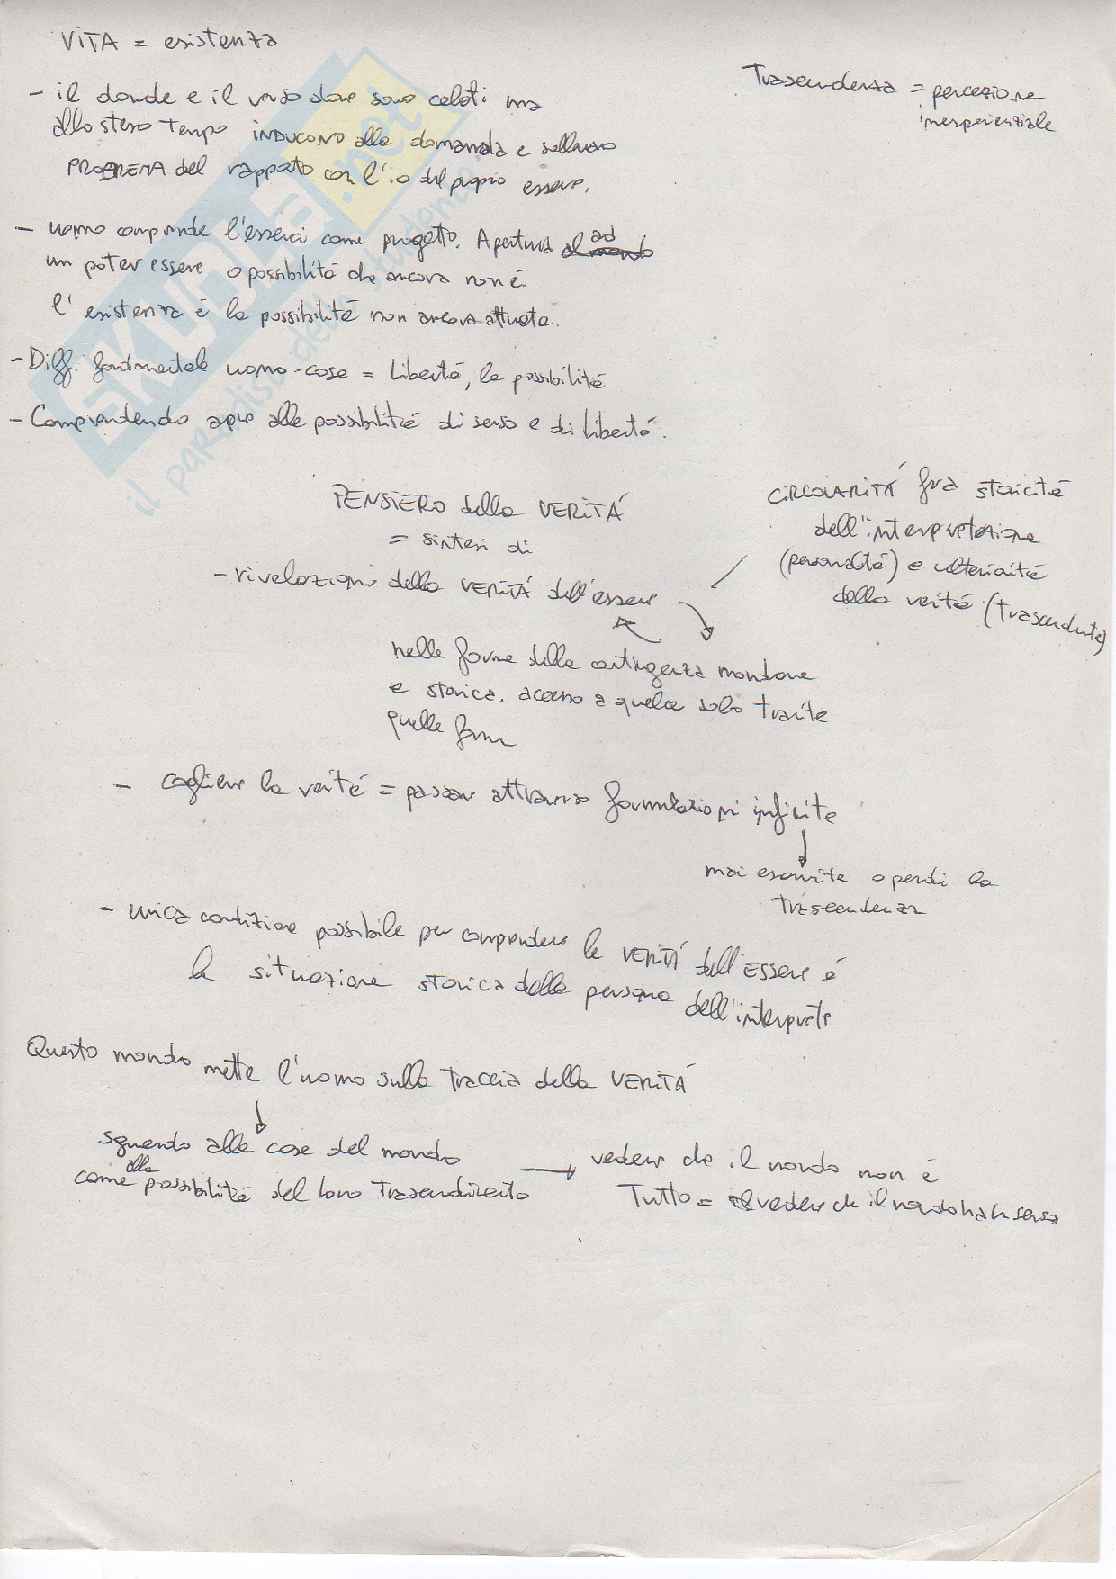 VITA = esistenza
Trascendenza = percezione
inesperienziale
- il donde e il verso dove sono celati ma
allo stesso tempo INDUCONO alla domanda e sollevano
PROBLEMA del rapporto con l'io del proprio essere.
- uomo comprende l'esserci come progetto. Apertura ad
un poter essere o possibilità che ancora non è
l'esistenza è la possibilità non ancora attuata.
- Diff. fondamentale uomo-cose = libertà, la possibilità
- Comprendendo apro alle possibilità di senso e di libertà.
PENSIERO della VERITÀ
= sintesi di
- rivelazioni della VERITÀ dell'essere
CIRCOLARITÀ fra storicità
dell'interpretazione
(personalità) e ulteriorità
della verità (trascendente)
nelle forme della contingenza mondana
e storica. accesso a quelle solo tramite
quelle forme
- cogliere la verità = passare attraverso formulazioni infinite
mai esaurite o perdi la
trascendenza
- unica condizione possibile per comprendere la VERITÀ dell'ESSERE è
la situazione storica della persona dell'interprete
Questo mondo mette l'uomo sulla traccia della VERITÀ
sguardo alle cose del mondo
come alla possibilità del loro trascendimento
vedere che il mondo non è
Tutto = vedere che il mondo ha un senso
SKUOLA.net
il paradiso dello studente